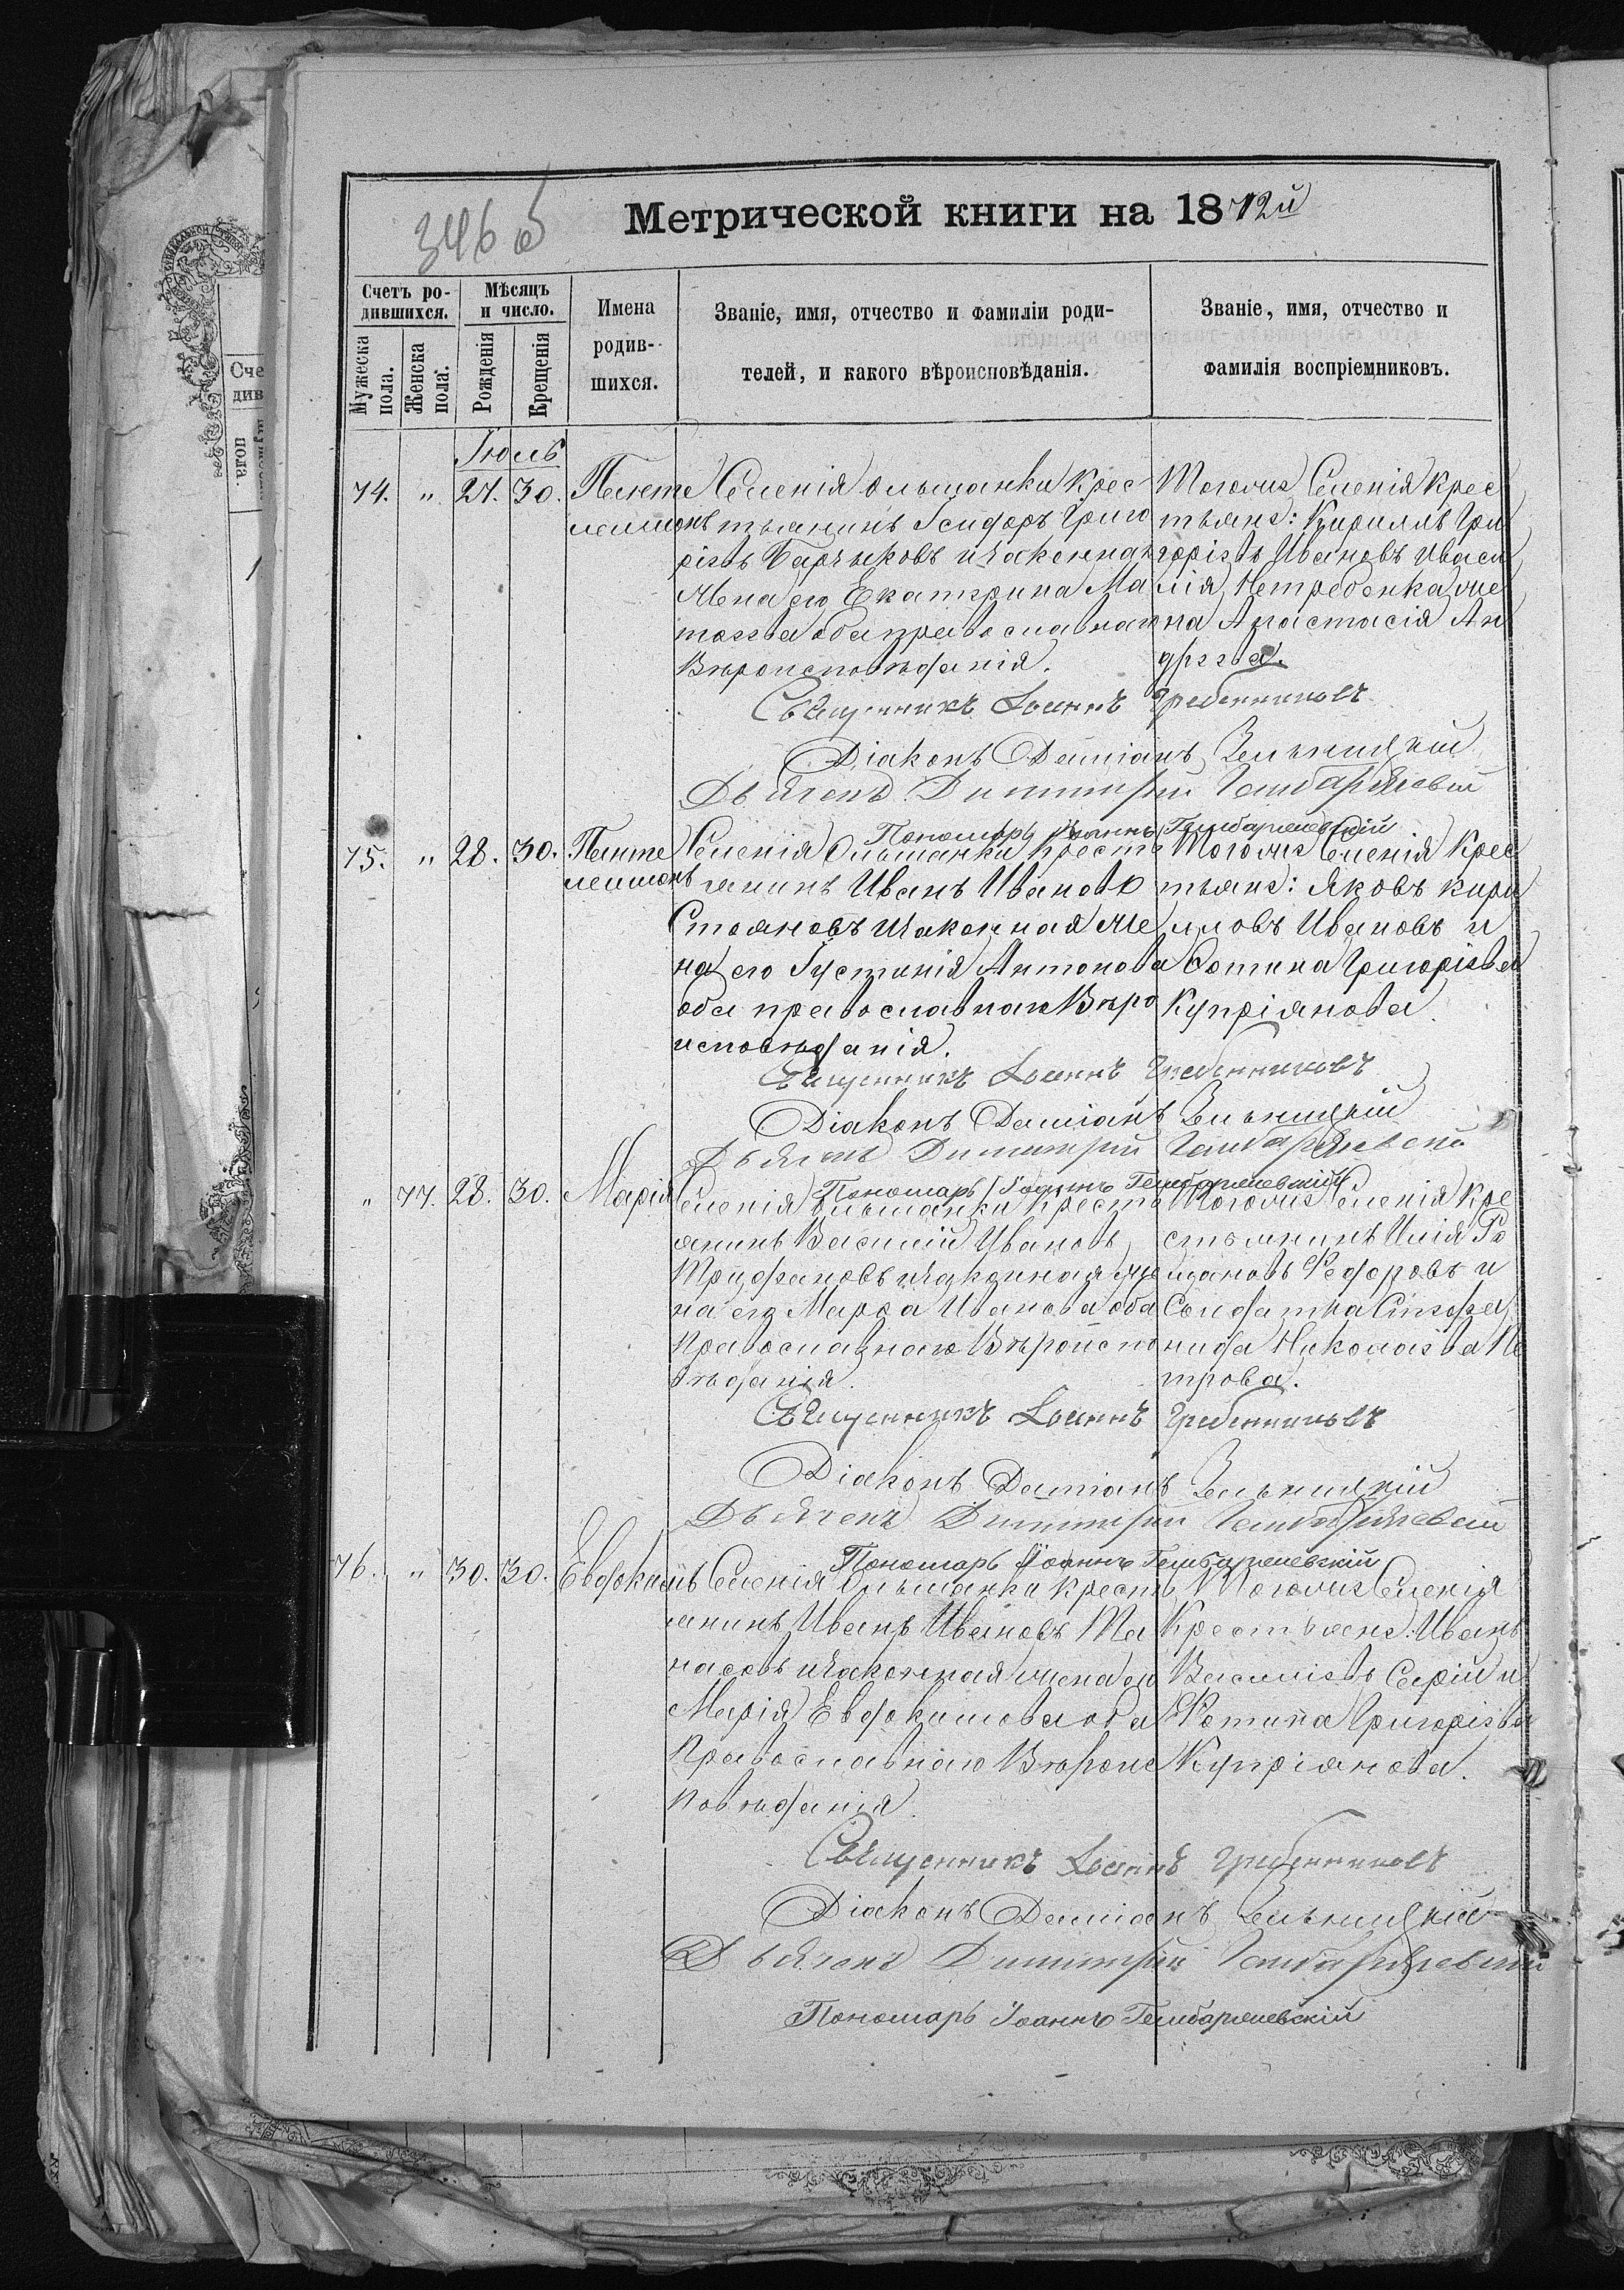 346 об
Метрической книги на 1872й
Счетъ ро-
дившихся.
Мѣсяцъ
и число.
Мужеска
пола.
Женска
пола.
Рожденія
Крещенія
Имена
родив-
шихся.
Званіе, имя, отчество и фамиліи роди-
телей, и какого вѣроисповѣданія.
Званіе, имя, отчество и
фамилія воспріемниковъ.
Іюль
74. „ 27. 30. Панте
леимонъ
Селенія Ольшанки крес
тьянинъ Ісидоръ Григо
ріевъ и законная
жена его Екатерина Ма
тоеева оба православнаго
Вѣроисповѣданія.
Тогоже Селенія крес
тьяне: Кириллъ Гри
горіевъ Ивановъ и Васи
лія Нетребенка же
на Анастасія Ан
дреева.
Священникъ Іоаннъ Гребенниковъ
Діаконъ Даміанъ Зельницкій
Дьячекъ Димитрій Гембаржевскій
Пономарь Іоаннъ Гембаржевскій
75. „ 28. 30. Панте
леимонъ
Селенія Ольшанки кресть
янинъ Иванъ Ивановъ
Стояновъ и законная же
на его Іустинія Антонова
оба православнаго Вѣро
исповѣданія.
Тогоже Селенія Крес
тьяне: Яковъ Кири
лловъ Ивановъ и
Фотина Григоріева
Купріянова.
Священникъ Іоаннъ Гребенниковъ
Діаконъ Даміанъ Зельницкій
Дьячекъ Димитрій Гембаржевскій
Пономарь Іоаннъ Гембаржевскій
„ 77. 28. 30. Марія
Селенія Ольшанки кресть
янинъ Василій Ивановъ
Трифановъ и законная же
на его Марфа Иванова оба
Православнаго Вѣроиспо
вѣданія.
Тогоже Селенія Кре
стьянинъ Илія Ро
мановъ Федоровъ и
Солдатка Степа
нида Николаева Пе
трова.
Священникъ Іоаннъ Гребенниковъ
Діаконъ Даміанъ Зельницкій
Дьячекъ Димитрій Гембаржевскій
Пономарь Іоаннъ Гембаржевскій
76. „ 30. 30. Евдокимъ
Селенія Ольшанки кресть
янинъ Иванъ Ивановъ Та
насовъ и законная жена его
Марія Евдокимова оба
Православнаго Вѣроис
повѣданія.
Тогоже Селенія
Крестьяне: Иванъ
Василіевъ Сафій и
Фотина Григоріева
Купріянова.
Священникъ Іоаннъ Гребенниковъ
Діаконъ Даміанъ Зельницкій
Дьячекъ Димитрій Гембаржевскій
Пономарь Іоаннъ Гембаржевскій